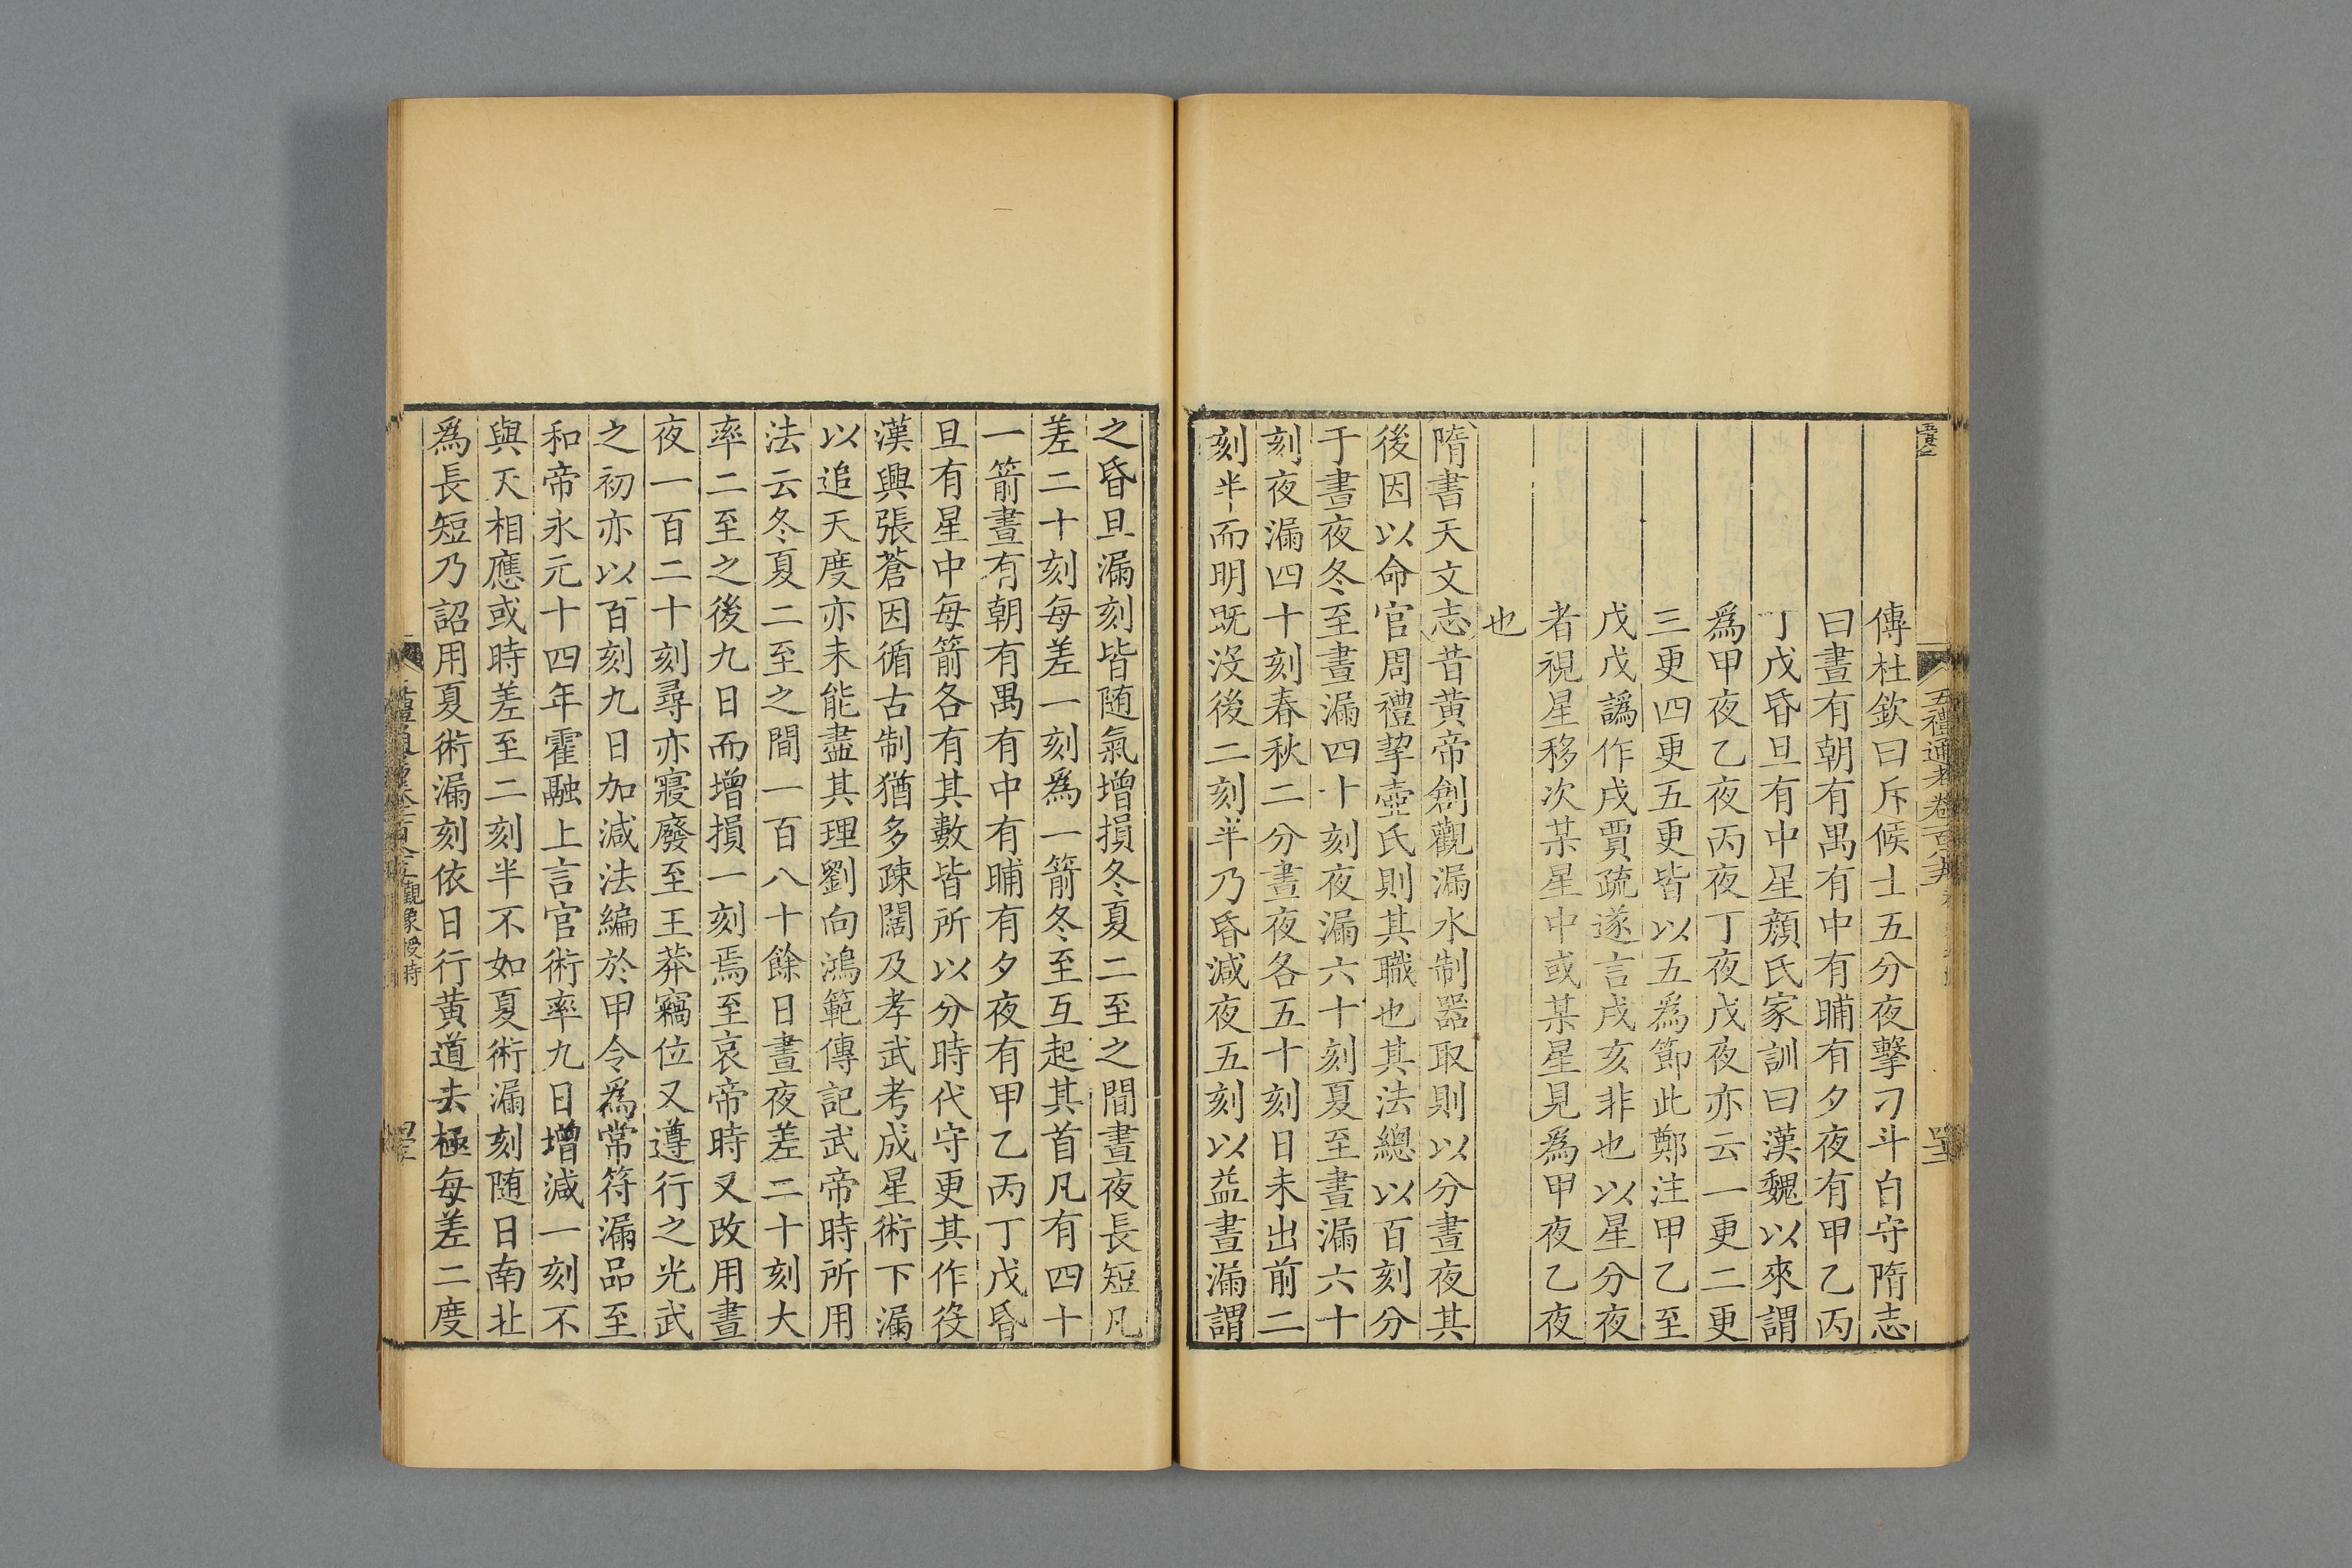 五禮通考卷一百八十五
傳杜欽曰斥候士五分夜擊刁斗自守隋志
曰晝有朝有禺有中有晡有夕夜有甲乙丙
丁戊昏旦有中星顏氏家訓曰漢魏以來謂
爲甲夜乙夜丙夜丁夜戊夜亦云一更二更
三更四更五更皆以五爲節此鄭注甲乙至
戊戊譌作戌賈疏遂言戌亥非也以星分夜
者視星移次某星中或某星見爲甲夜乙夜
也
隋書天文志昔黄帝創觀漏水制器取則以分晝夜其
後因以命官周禮挈壺氏則其職也其法總以百刻分
于晝夜冬至晝漏四十刻夜漏六十刻夏至晝漏六十
刻夜漏四十刻春秋二分晝夜各五十刻日未出前二
刻半而明既沒後二刻半乃昏減夜五刻以益晝漏謂
之昏旦漏刻皆随氣增損冬夏二至之間晝夜長短凡
差二十刻每差一刻爲一箭冬至互起其首凡有四十
一箭晝有朝有禺有中有晡有夕夜有甲乙丙丁戊昏
旦有星中每箭各有其數皆所以分時代守更其作役
漢興張蒼因循古制猶多疎闊及孝武考成星術下漏
以追天度亦未能盡其理劉向鴻範傳記武帝時所用
法云冬夏二至之間一百八十餘日晝夜差二十刻大
率二至之後九日而增損一刻焉至哀帝時又改用晝
夜一百二十刻尋亦寢廢至王莽竊位又遵行之光武
之初亦以百刻九日加減法編於甲令爲常符漏品至
和帝永元十四年霍融上言官術率九日增減一刻不
與天相應或時差至二刻半不如夏術漏刻随日南北
爲長短乃詔用夏術漏刻依日行黄道去極每差二度
觀象授時